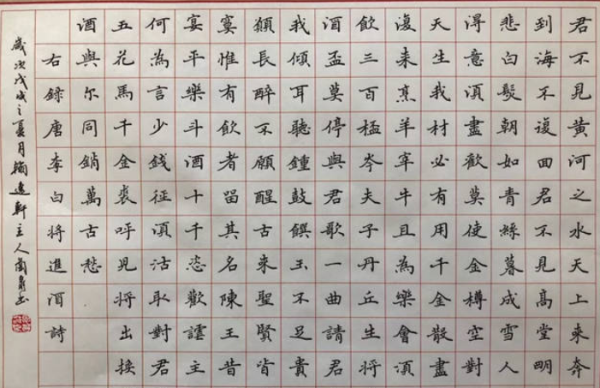 君不見黃河之水天上來奔
到海不復回君不見高堂明
悲白髮朝如青絲暮成雪人
得意須盡歡莫使金樽空對
天生我材必有用千金散盡
復來烹羊宰牛且為樂會須
飲三百桮岑夫子丹丘生將
酒盃莫停與君歌一曲請君
我傾耳聽鐘鼓饌玉不足貴
願長醉不願醒古來聖賢皆
寞惟有飲者留其名陳王昔
宴平樂斗酒十千恣歡謔主
何為言少錢徑須沽取對君
五花馬千金裘呼兒將出換
酒與尔同銷萬古愁
右錄唐李白將進酒詩
歲次戊戌之夏月翰逸軒主人蘭書